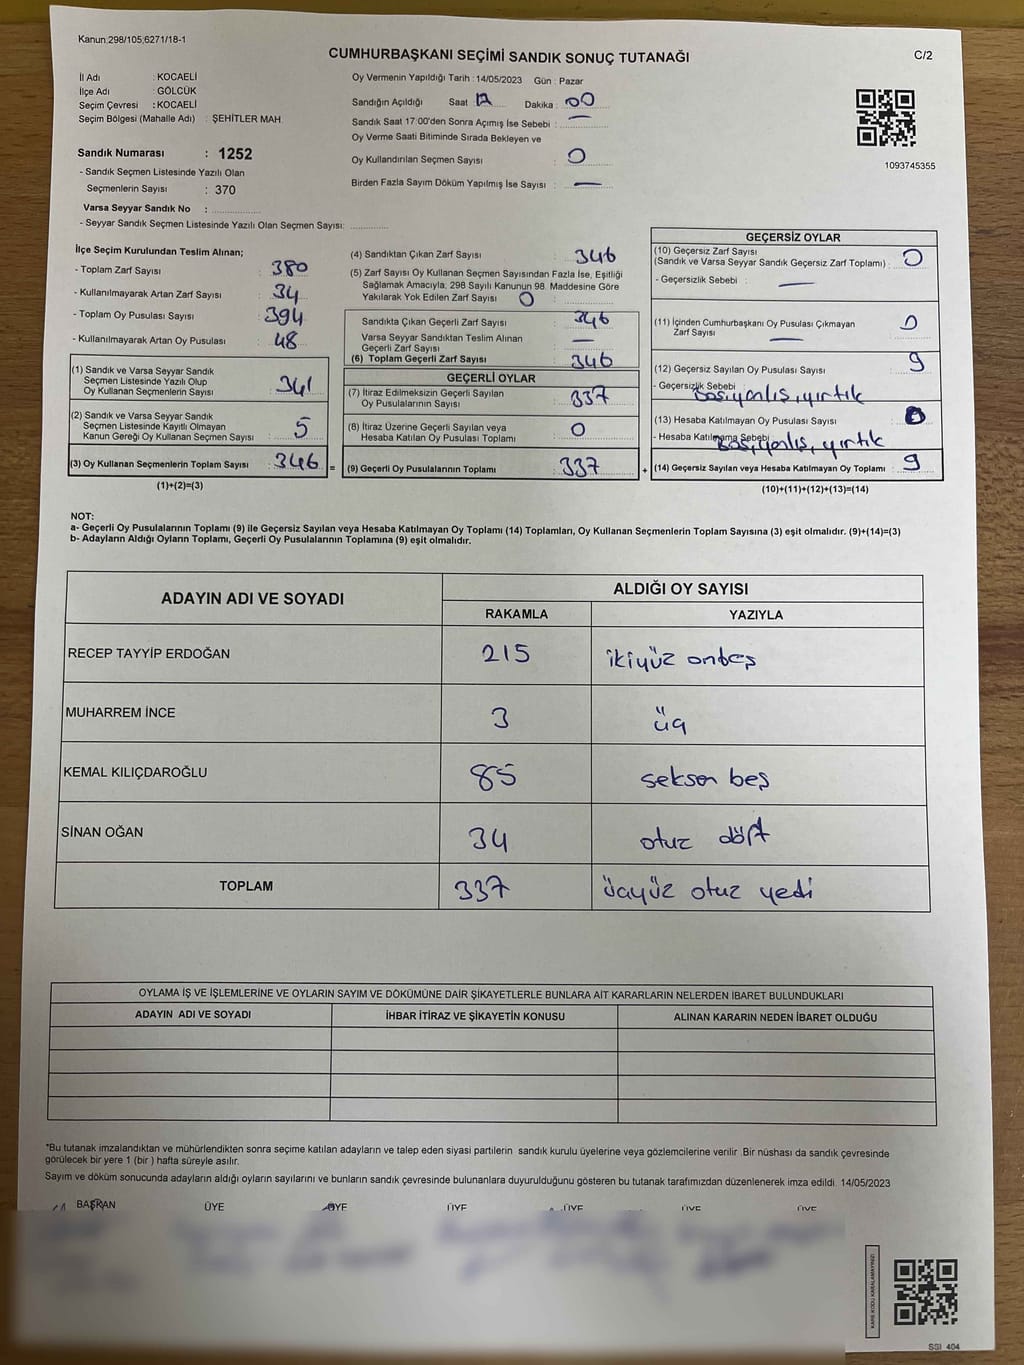 Kanun:298/105;6271/18-1
CUMHURBAŞKANI SEÇİMİ SANDIK SONUÇ TUTANAĞI
C/2
İl Adı : KOCAELİ
İlçe Adı : GÖLCÜK
Seçim Çevresi : KOCAELİ
Seçim Bölgesi (Mahalle Adı) : ŞEHİTLER MAH.
Sandık Numarası : 1252
- Sandık Seçmen Listesinde Yazılı Olan
Seçmenlerin Sayısı : 370
Varsa Seyyar Sandık No :
- Seyyar Sandık Seçmen Listesinde Yazılı Olan Seçmen Sayısı:
Oy Vermenin Yapıldığı Tarih : 14/05/2023 Gün : Pazar
Sandığın Açıldığı Saat : 17 Dakika : 00
Sandık Saat 17:00'den Sonra Açımış İse Sebebi : —
Oy Verme Saati Bitiminde Sırada Bekleyen ve
Oy Kullandırılan Seçmen Sayısı : 0
Birden Fazla Sayım Döküm Yapılmış İse Sayısı : —
1093745355
İlçe Seçim Kurulundan Teslim Alınan;
- Toplam Zarf Sayısı : 380
- Kullanılmayarak Artan Zarf Sayısı : 34
- Toplam Oy Pusulası Sayısı : 394
- Kullanılmayarak Artan Oy Pusulası : 48
(1) Sandık ve Varsa Seyyar Sandık
Seçmen Listesinde Yazılı Olup
Oy Kullanan Seçmenlerin Sayısı : 341
(2) Sandık ve Varsa Seyyar Sandık
Seçmen Listesinde Kayıtlı Olmayan
Kanun Gereği Oy Kullanan Seçmen Sayısı : 5
(3) Oy Kullanan Seçmenlerin Toplam Sayısı : 346 =
(1)+(2)=(3)
(4) Sandıktan Çıkan Zarf Sayısı : 346
(5) Zarf Sayısı Oy Kullanan Seçmen Sayısından Fazla İse, Eşitliği
Sağlamak Amacıyla, 298 Sayılı Kanunun 98. Maddesine Göre
Yakılarak Yok Edilen Zarf Sayısı 0
Sandıkta Çıkan Geçerli Zarf Sayısı : 346
Varsa Seyyar Sandıktan Teslim Alınan
Geçerli Zarf Sayısı : —
(6) Toplam Geçerli Zarf Sayısı : 346
GEÇERLİ OYLAR
(7) İtiraz Edilmeksizin Geçerli Sayılan
Oy Pusulalarının Sayısı : 337
(8) İtiraz Üzerine Geçerli Sayılan veya
Hesaba Katılan Oy Pusulası Toplamı : 0
(9) Geçerli Oy Pusulalarının Toplamı : 337 +
GEÇERSİZ OYLAR
(10) Geçersiz Zarf Sayısı
(Sandık ve Varsa Seyyar Sandık Geçersiz Zarf Toplamı) : 0
- Geçersizlik Sebebi : —
(11) İçinden Cumhurbaşkanı Oy Pusulası Çıkmayan
Zarf Sayısı : 0
—
(12) Geçersiz Sayılan Oy Pusulası Sayısı : 9
- Geçersizlik Sebebi boş, yanlış, yırtık
(13) Hesaba Katılmayan Oy Pusulası Sayısı : 0
- Hesaba Katılmama Sebebi boş, yanlış, yırtık
(14) Geçersiz Sayılan veya Hesaba Katılmayan Oy Toplamı : 9
(10)+(11)+(12)+(13)=(14)
NOT:
a- Geçerli Oy Pusulalarının Toplamı (9) ile Geçersiz Sayılan veya Hesaba Katılmayan Oy Toplamı (14) Toplamları, Oy Kullanan Seçmenlerin Toplam Sayısına (3) eşit olmalıdır. (9)+(14)=(3)
b- Adayların Aldığı Oyların Toplamı, Geçerli Oy Pusulalarının Toplamına (9) eşit olmalıdır.
ADAYIN ADI VE SOYADI
ALDIĞI OY SAYISI
RAKAMLA YAZIYLA
RECEP TAYYİP ERDOĞAN 215 ikiyüz onbeş
MUHARREM İNCE 3 üç
KEMAL KILIÇDAROĞLU 85 seksen beş
SİNAN OĞAN 34 otuz dört
TOPLAM 337 üçyüz otuz yedi
OYLAMA İŞ VE İŞLEMLERİNE VE OYLARIN SAYIM VE DÖKÜMÜNE DAİR ŞİKAYETLERLE BUNLARA AİT KARARLARIN NELERDEN İBARET BULUNDUKLARI
ADAYIN ADI VE SOYADI İHBAR İTİRAZ VE ŞİKAYETİN KONUSU ALINAN KARARIN NEDEN İBARET OLDUĞU
*Bu tutanak imzalandıktan ve mühürlendikten sonra seçime katılan adayların ve talep eden siyasi partilerin sandık kurulu üyelerine veya gözlemcilerine verilir .Bir nüshası da sandık çevresinde
görülecek bir yere 1 (bir ) hafta süreyle asılır.
Sayım ve döküm sonucunda adayların aldığı oyların sayılarını ve bunların sandık çevresinde bulunanlara duyurulduğunu gösteren bu tutanak tarafımızdan düzenlenerek imza edildi. 14/05/2023
BAŞKAN ÜYE ÜYE ÜYE ÜYE ÜYE ÜYE
KARE KODU KARALAMAYINIZ!
SSI_404